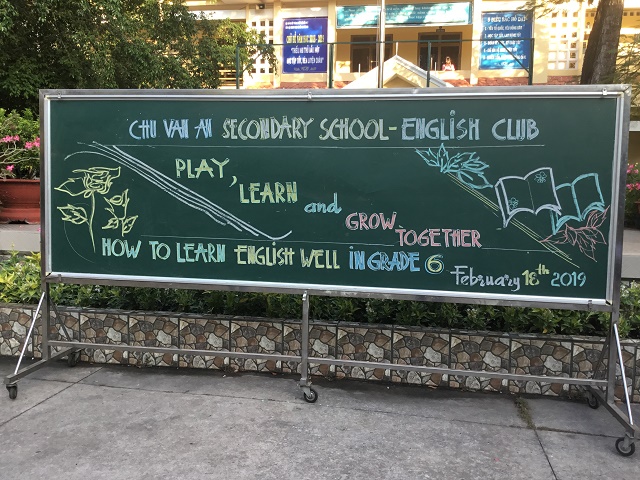 CHU VAN AN SECONDARY SCHOOL - ENGLISH CLUB
PLAY,
LEARN and
GROW TOGETHER
HOW TO LEARN ENGLISH WELL IN GRADE 6
February 18th 2019